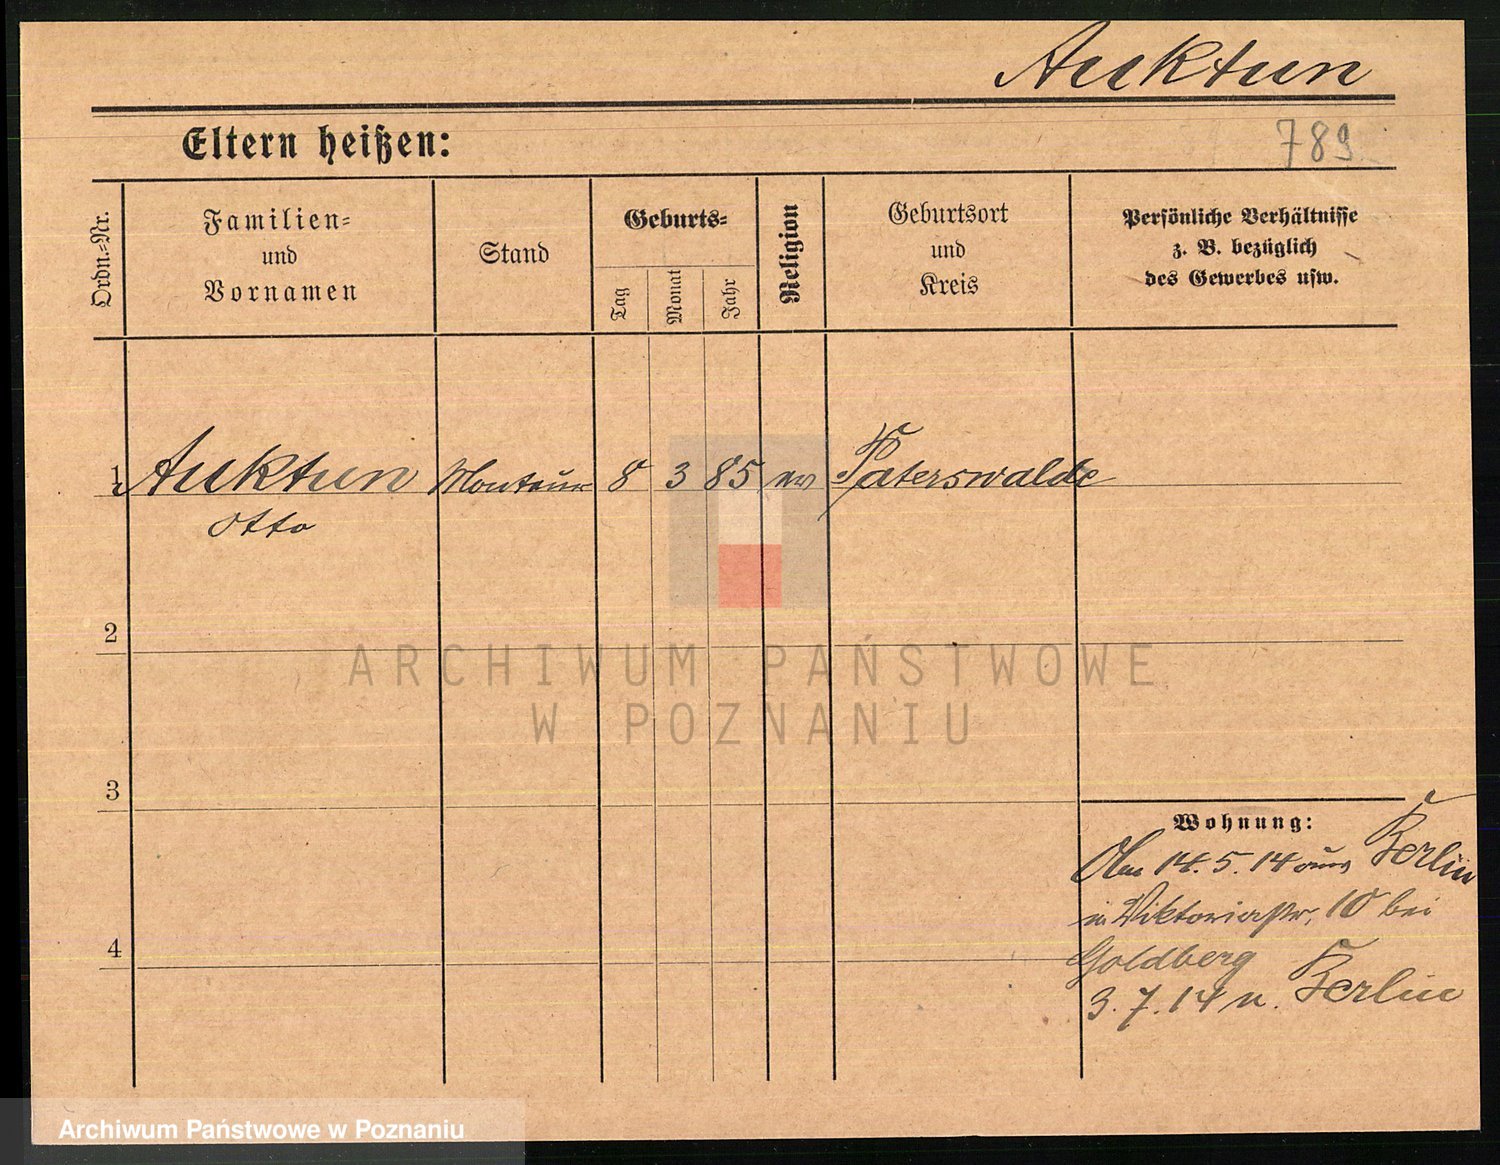 Auktun
Eltern heißen:
789
Ordn.-Nr.
Familien-
und
Vornamen
Stand
Geburts-
Tag
Monat
Jahr
Religion
Geburtsort
und
Kreis
Persönliche Verhältnisse
z. B. bezüglich
des Gewerbes usw.
1 Auktun Monteur 8 3 85 ev Paterswalde
Otto
2
ARCHIWUM PAŃSTWOWE
W POZNANIU
3
Wohnung:
14. 5. 14 aus Berlin
in Viktoriastr. 10 bei
4
Goldberg
3. 7. 14 n. Berlin
Archiwum Państwowe w Poznaniu